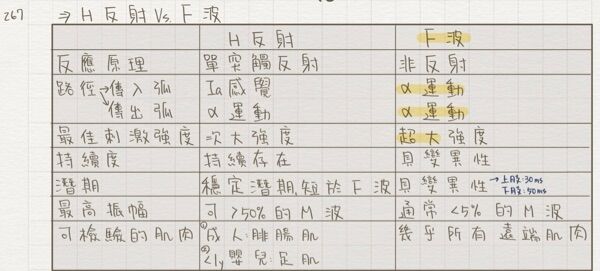 267 ⇒ H 反射 Vs. F 波
H 反射 F 波
反應原理 單突觸反射 非反射
路徑→傳入弧 Ia 感覺 α 運動
傳出弧 α 運動 α 運動
最佳刺激強度 次大強度 超大強度
持續度 持續存在 具變異性
潛期 穩定潛期,短於 F 波 具變異性 →上肢:30ms
下肢:50ms
最高振幅 可 >50% 的 M 波 通常 <5% 的 M 波
可檢驗的肌肉 ①成人:腓腸肌 幾乎所有遠端肌肉
②<1y 嬰兒:足肌